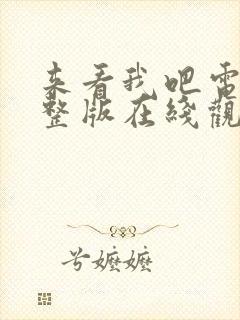 来看我吧电
整版在线观
兮嬷嬷